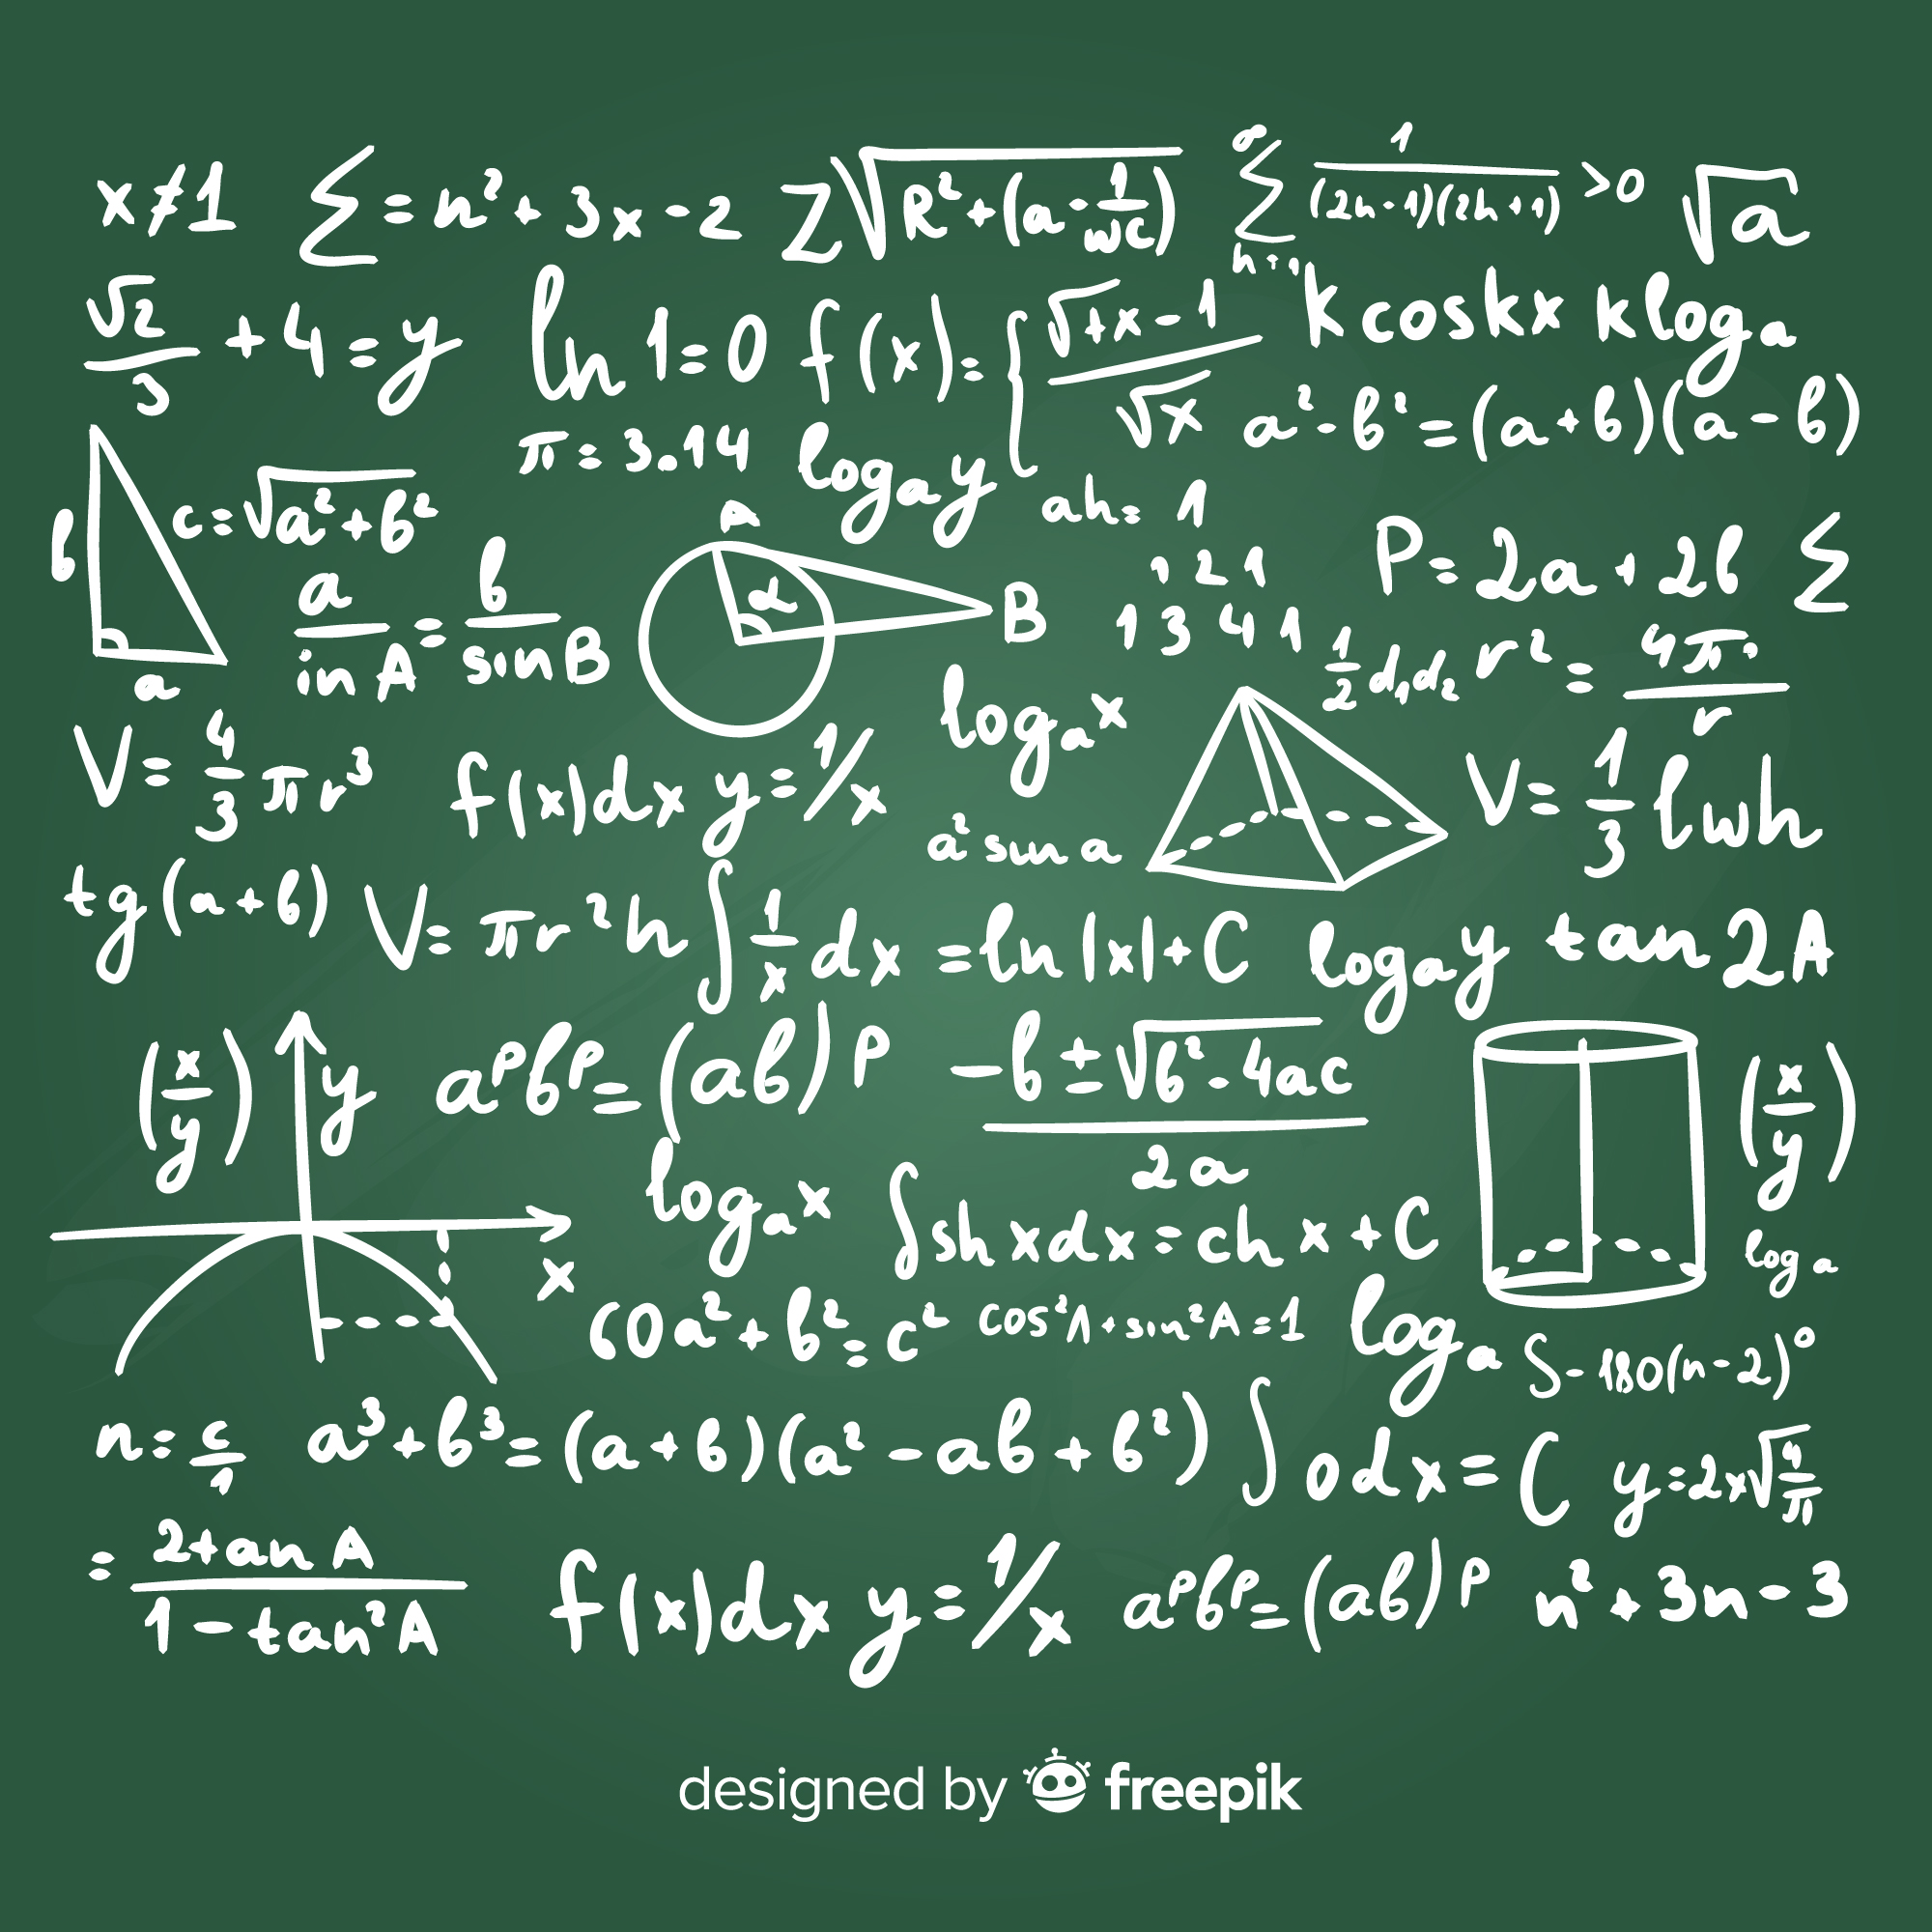 x≠1 Σ=n²+3x-2 Z√R²+(a-1/wc) Σ 1/(2n-1)(2h+1) >0 √a
√2/3 +4=y ln 1=0 f(x)={ √+x-1/√x k coskx k log a
π=3.14 log a y a²-b²=(a+b)(a-b)
b c=√a²+b² A ah=1 P=2a+2b Σ
a/in A = b/sin B α B 1 2 1
1 3 4 1
a 1/2 d₁d₂ r²= 4π/r
V=4/3 πr³ f(x)dx y=1/x log a x V=1/3 lwh
a² sin a
tg(a+b) V=πr²h ∫1/x dx=ln|x|+C log a y tan 2A
(x/y) y aᵖbᵖ=(ab)ᵖ -b±√b²-4ac/2a (x/y)
log a x ∫sh x dx=ch x+C log a
x 60 a²+b²=c² cos²A+sin²A=1 log a S-180(n-2)°
n=c/1 a³+b³=(a+b)(a²-ab+b²) ∫0dx=C y=2x√4/π
= 2tan A/1-tan²A f(x)dx y=1/x aᵖbᵖ=(ab)ᵖ n²+3n-3
designed by freepik